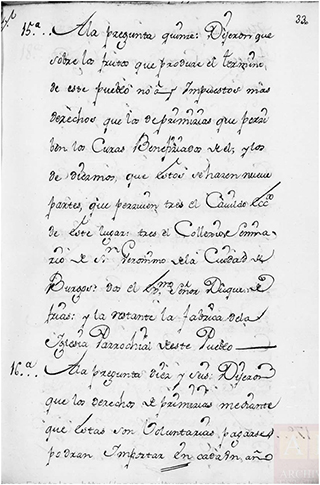 33
15.ª A la pregunta quinze: Dijeron que
sobre los frutos que produze el termino
de este pueblo no ay Impuestos mas
derechos, que los de primizias que perzi
ben los Curas Beneficiados de el, y los
de diezmos, que estos se hazen nueve
partes, que perziven tres el Cavildo Ecco
de este lugar: tres el Collexio Semina
rio de Sn Geronimo de la Ciudad de
Burgos: dos el Exmo Señor Duque de
frias: y la restante la fabrica de la
Iglesia Parrochial de este Pueblo
16.ª A la pregunta diez y seis: Dijeron
que los derechos de primizias mediante
que estas son Voluntarias pagarse
podran Importar en cada un año